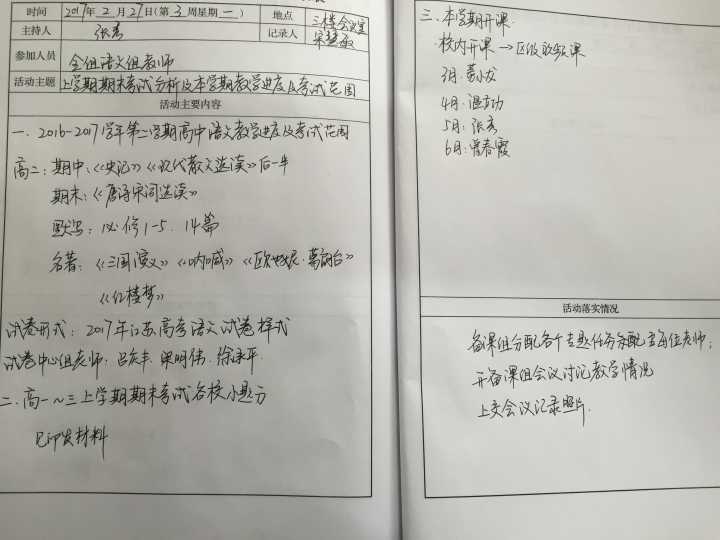 时间 2017年2月27日(第3周星期一) 地点 三楼会议室
主持人 张秀 记录人
参加人员 全组语文组教师
活动主题 上学期期末考试分析及本学期教学进度及考试范围
活动主要内容
一、2016-2017学年第二学期高中语文教学进度及考试范围
高二:期中:《史记》《现代散文选读》后一半
期末:《唐诗宋词选读》
默写:必修1-5、14篇
名著:《三国演义》《呐喊》《欧也妮·葛朗台》
《红楼梦》
试卷形式:2017年江苏高考语文试卷样式
试卷中心组老师:
二、高一~三上学期期末考试各校小题分
见印发材料
三、本学期开课
校内开课→区级公开课
3月:
4月:温立功
5月:张秀
6月:曾春霞
活动落实情况
备课组分配各个专题任务分配至每位老师;
开备课组会议讨论教学情况
上交会议记录照片.